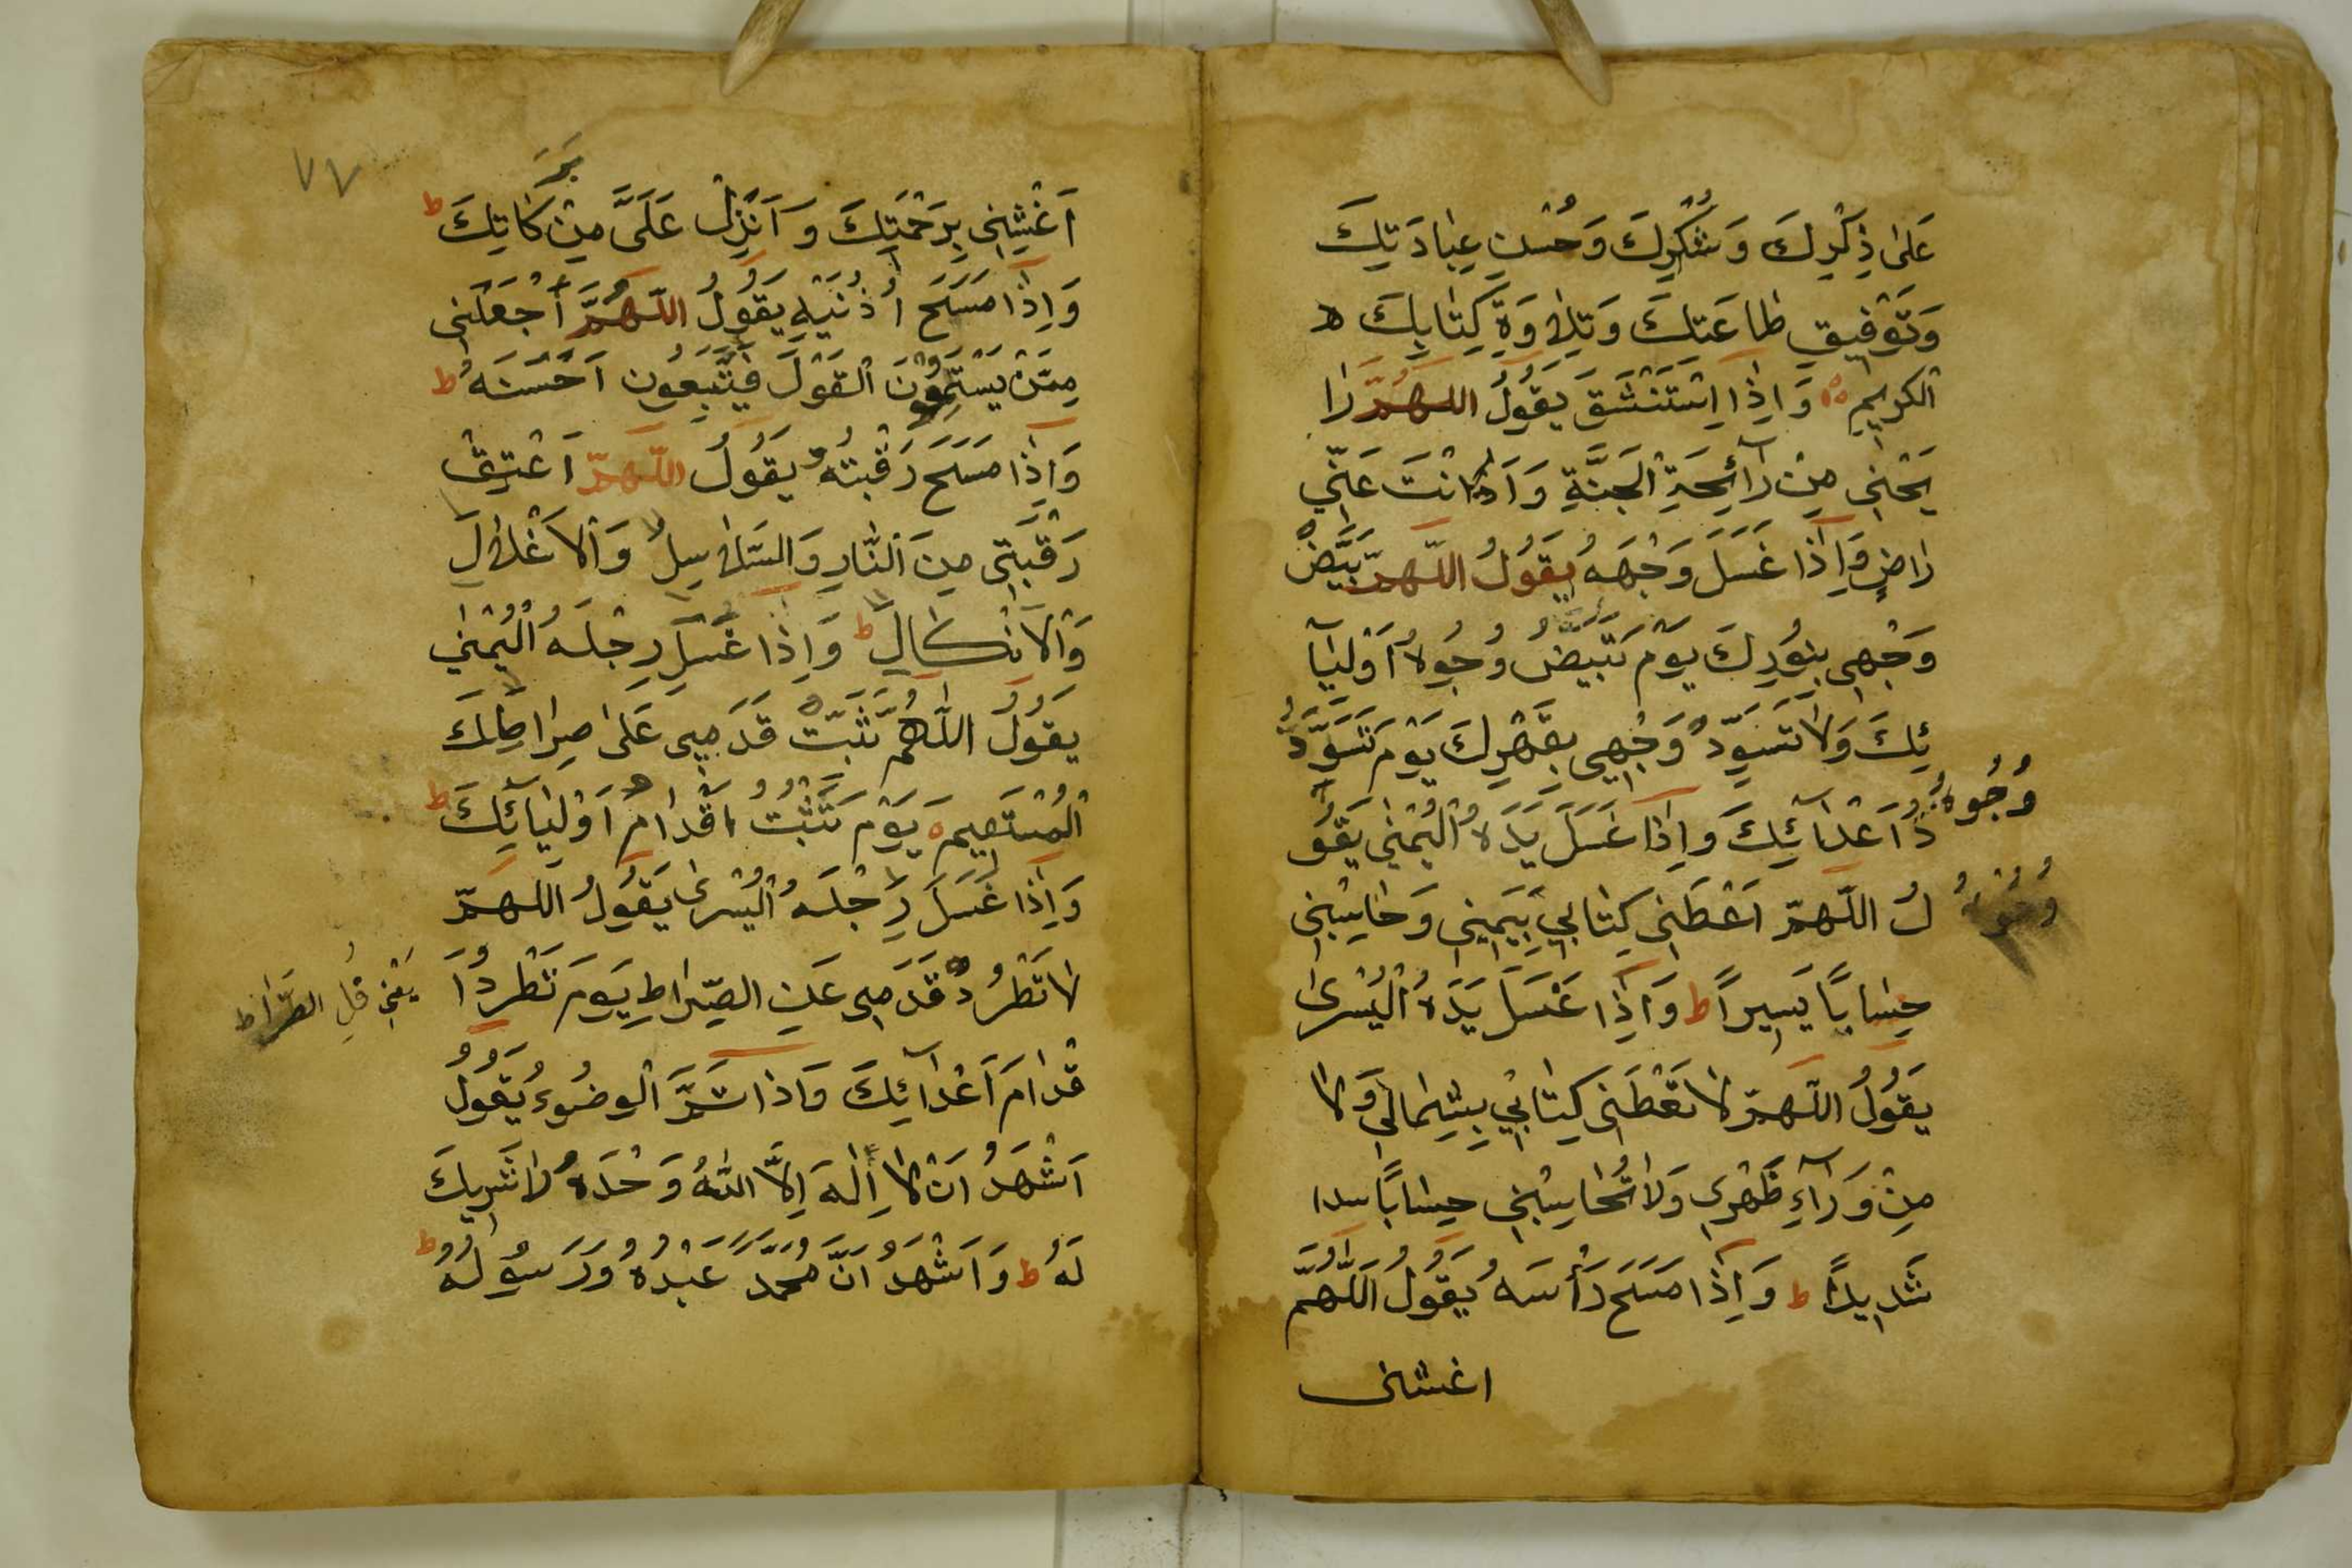 عَلٰى ذِكْرِكَ وَشُكْرِكَ وَحُسْنِ عِبَادَتِكَ
وَتَوْفِيقِ طَاعَتِكَ وَتِلَاوَةِ كِتَابِكَ
الْكَرِيمِ وَاِذَا اِسْتَنْشَقَ يَقُولُ اللهمَّ رَا
يَحْنِى مِنْ رَآئِحَةِ الْجَنَّةِ وَاَ انْتَ عَنِّي
رَاضٍ وَاِذَا غَسَلَ وَجْهَهُ يَقُولُ اللّهمّ بَيِّضْ
وَجْهِى بِنُورِكَ يَوْمَ تَبْيَضُّ وُجُوهُ اَوْلِيَآ
ئِكَ وَلَا تُسَوِّدْ وَجْهِى بِقَهْرِكَ يَوْمَ تَسْوَدُّ
وُجُوهُ
دُ اَعْدَآئِكَ وَاِذَا غَسَلَ يَدَهُ الْيُمْنٰى يَقُو
لُ اللّهمّ اَعْطِنِى كِتَابِي بِيَمِينِى وَحَاسِبْنِى
حِسَابًا يَسِيرًا ط وَاِذَا غَسَلَ يَدَهُ الْيُسْرٰى
يَقُولُ اللّهمّ لَا تَعْطِنِى كِتَابِي بِشِمَالِى وَلَا
مِنْ وَرَآءِ ظَهْرِى وَلَا تُحَاسِبْنِى حِسَابًا
شَدِيدًا ط وَاِذَا مَسَحَ رَأْسَهُ يَقُولُ اَللّٰهُمَّ
اغشنى
٧٧
بَرَ
اَغْشِنِى بِرَحْمَتِكَ وَاَنْزِلْ عَلَىَّ مِنْ كَاتِكَ ط
وَاِذَا مَسَحَ اُذُنَيْهِ يَقُولُ اللّهُمَّ اجْعَلْنِى
مِمَّنْ يَسْتَمِعُونَ الْقَوْلَ فَيَتَّبِعُونَ اَحْسَنَهُ ط
وَاِذَا مَسَحَ رَقْبَتَهُ يَقُولُ اللّهمّ اَعْتِقْ
رَقْبَتِى مِنَ النَّارِ وَالسَّلَاسِلِ وَالْاَغْلَالِ
وَالْاَنْكَالِ ط وَاِذَا غَسَلَ رِجْلَهُ الْيُمْنٰى
يَقُولُ اللّٰهُمَّ ثَبِّتْ قَدَمِى عَلٰى صِرَاطِكَ
الْمُسْتَقِيمِ يَوْمَ تَثْبُتُ اَقْدَامُ اَوْلِيَائِكَ ط
وَاِذَا غَسَلَ رِجْلَهُ الْيُسْرٰى يَقُولُ اللهمّ
لَا تَطْرُدْ قَدَمِى عَنِ الصِّرَاطِ يَوْمَ تَطْرُدُ اَ
يَعْنِى قُلِ الصِّرَاط
قْدَامَ اَعْدَآئِكَ وَاِذَا تَمَّ الْوُضُوءُ يَقُولُ
اَشْهَدُ اَنْ لَا اِلٰهَ اِلَّا اللّٰهُ وَحْدَهُ لَا شَرِيكَ
لَهُ ط وَاَشْهَدُ اَنَّ مُحَمَّد عَبْدُهُ وَرَسُولُهُ ط